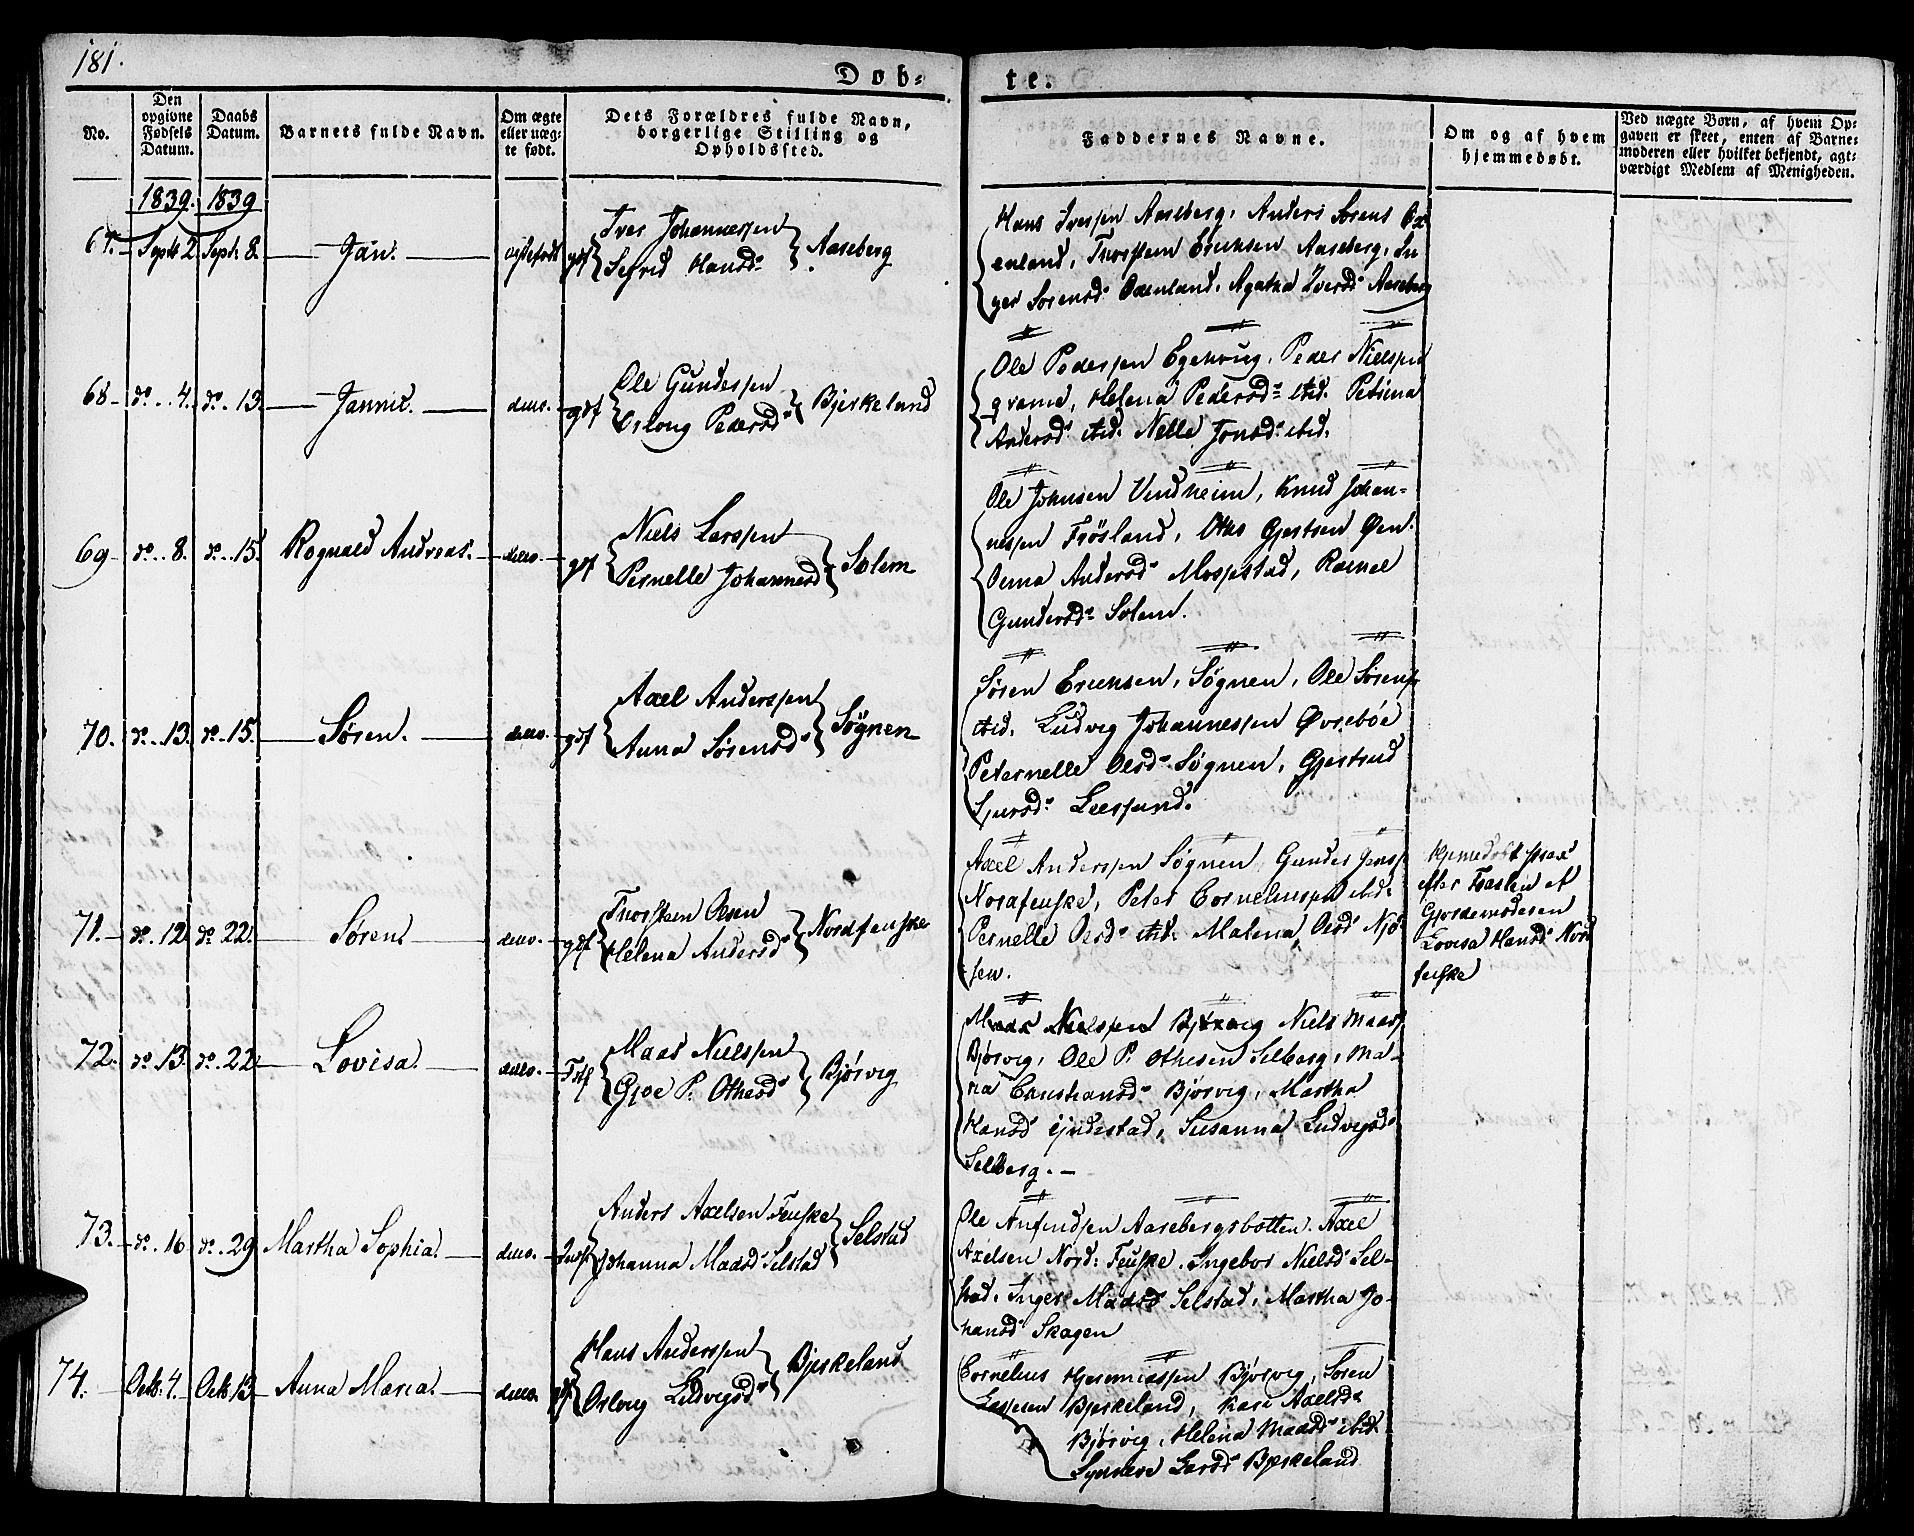 181.
Døb-
te.
No.
Den opgivne Fødsels Datum.
Daabs Datum.
Barnets fulde Navn.
Om ægte eller uæg- te født.
Dets Forældres fulde Navn, borgerlige Stilling og Opholdssted.
Faddernes Navne.
Om og af hvem hjemmedøbt.
Ved uægte Børn, af hvem Op- gaven er skeet, enten af Barne- moderen eller hvilket bekjendt, agt- værdigt Medlem af Menigheden.
1839. 1839
67. Septb 2 Sept. 8. Jan. ægtefødt gdf
Iver Johannessen
Sefrid Hansd. Aaseberg
Hans Iversen Aaseberg, Anders Sørens Ox-
enland, Thorsten Ericksen Aaseberg, In-
ger Sørensd. Oxenland, Agatha Iversd. Aaseberg
68. do. 4. do. 13. Jannie. dito. gdf
Ole Gundersen
Orloug Pedersd. Bjerkeland
Ole Pedersen Egekvig, Peder Nielssen
grame, Helena Pedersd. ibid. Petrina
Andersd. ibid. Nelle Jonsd. ibid.
69 do. 8. do. 15. Rognald Andreas. dito. gdf
Niels Larssen
Pernelle Johannesd. Solem
Ole Johnsen Vindheim, Knud Johan-
nessen Frøsland, Othe Gjertsen Øen.
Anna Andersd. Mosestad, Rachel
Gundersd. Solem.
70. do. 13. do. 15. Søren. dito. gdf
Axel Anderssen
Anna Sørensd. Søgnen
Søren Ericksen, Søgnen, Ole Sørens.
ibid. Ludvig Johannessen Øvrebøe
Peternelle Olsd. Søgnen, Gjertrud
Sjursd. Leersund.
71. do. 12 do. 22. Søren. dito. gdf
Thorsten Olsen
Helena Andersd. Nordfenske
Axel Anderssen Søgnen Gunder Jenss
Nordfenske, Peter Corneliussen ibid.
Pernelle Olsd. ibid. Malena Olsd. Njø-
sen.
Hjemedøbt strax
efter Fødselen af
Gjordemoderen
Lovisa Hansd. Nord
fenske
72. do. 13. do. 22 Lovisa. dito.
Maas Nielssen
Gjøe P. Othesd. Bjørvig
Maas Nielssen Bjørvig Niels Maass
Bjørvig, Ole P. Othesen Selberg, Ma-
ria Christiansd. Bjørvig, Martha
Hansd. Indestad, Susanna Ludvigsd.
Selberg.
73. do. 16 do. 29. Martha Sophia. dito.
Anders Axelsen Fenske
Johanna Madsd. Selstad Selstad
Ole Anfindsen Aasebergsbotten. Axel
Axelsen Nord. Fenske. Ingebor Nielsd. Sel-
stad. Inger Madsd. Selstad, Martha Jo-
hansd. Skagen
74. Octb. 4. Octb 13 Anna Maria. dito. gdf
Hans Anderssen
Orloug Ludvigsd. Bjerkeland
Cornelius Hjeremiassen Bjørvig, Søren
Lassesen Bjerkeland, Kari Axelsd.
Bjørvig, Helena Maasd. ibid.
Synneve Larsd. Bjerkeland